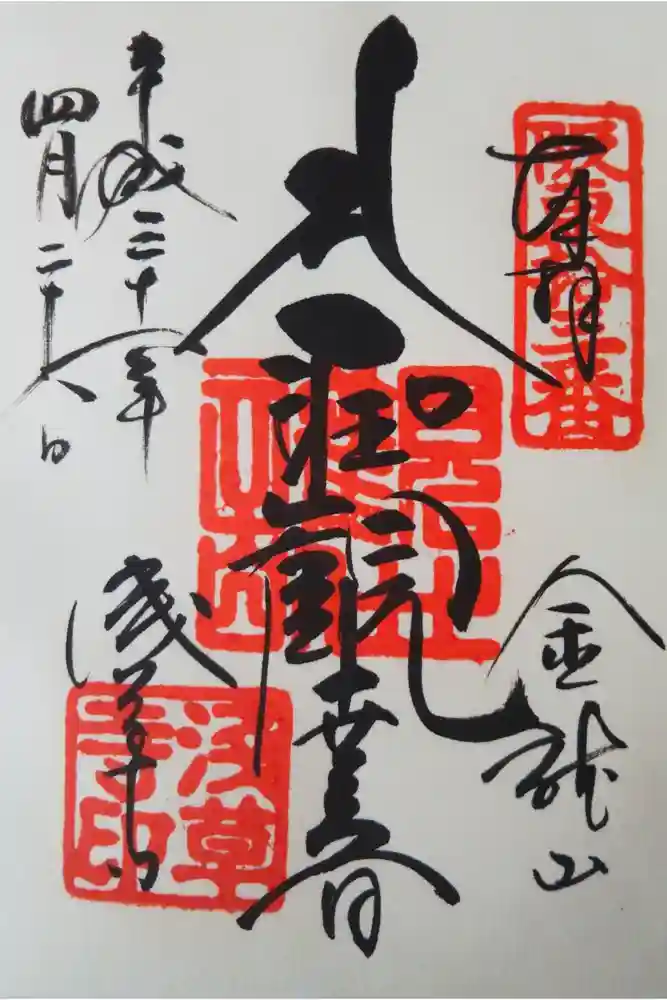 奉拝
阪東拾三番
大聖観世音
金龍山
平成三十年
四月二十八日
浅草寺
浅草寺印